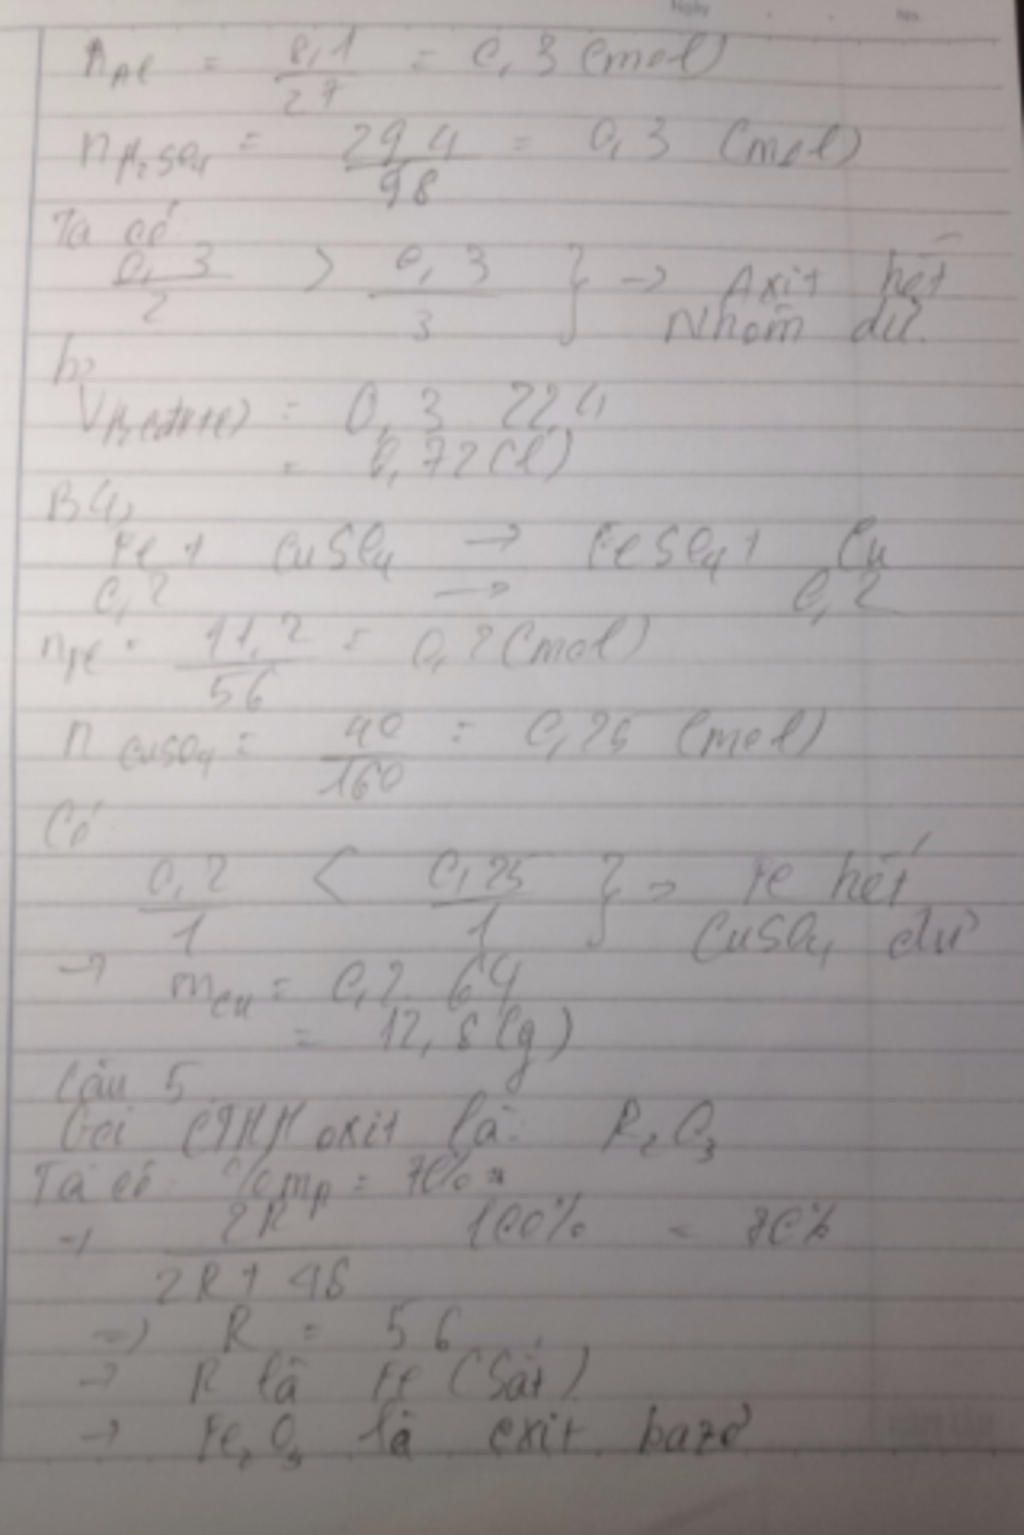 Ngày No.
nAl = 8,1/27 = 0,3 (mol)
nH2SO4 = 29,4/98 = 0,3 (mol)
Ta có
0,3/2 > 0,3/3 } → Axit hết
Nhôm dư.
b,
VH2(đktc) = 0,3 22,4
= 6,72 (l)
B4,
Fe + CuSO4 → FeSO4 + Cu
0,2 → 0,2
nFe = 11,2/56 = 0,2 (mol)
nCuSO4 = 40/160 = 0,25 (mol)
Có
0,2/1 < 0,25/1 } → Fe hết
CuSO4 dư
→ mCu = 0,2. 64
= 12,8 (g)
Câu 5
Gọi CTHH oxit là: R2O3
Ta có: %mR = 70%
→ 2R/2R + 48 100% = 70%
=> R = 56
→ R là Fe (Sắt)
→ Fe2O3 là oxit bazơ